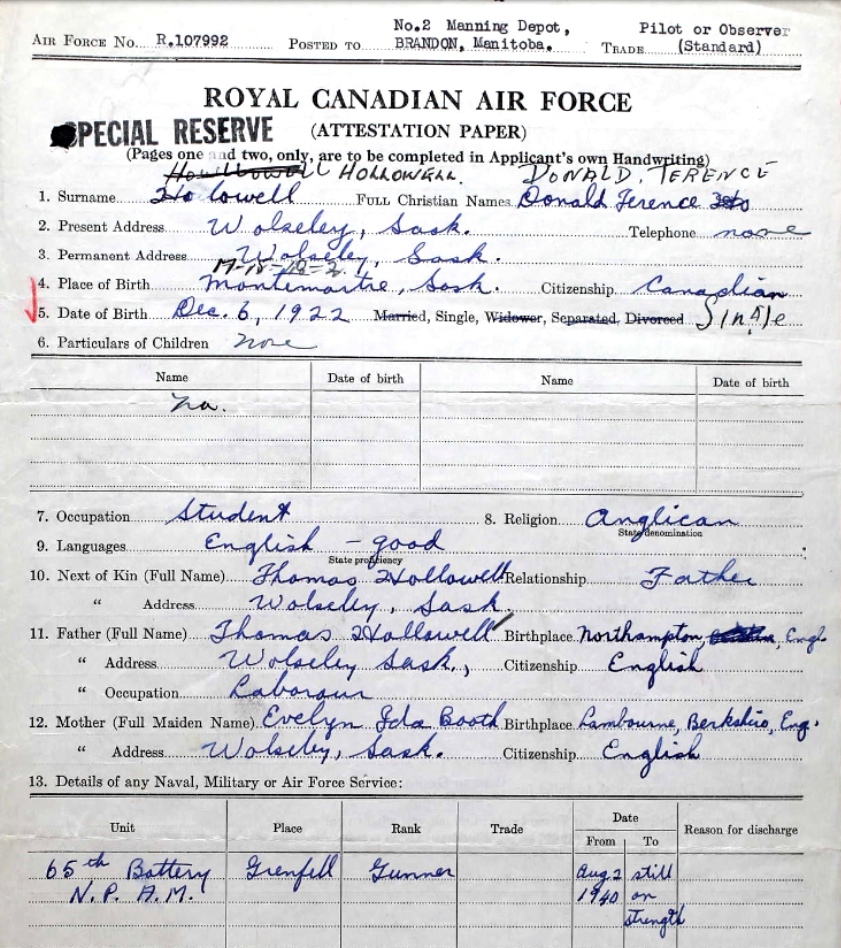 No.2 Manning Depot, Pilot or Observer
AIR FORCE NO. R.107992 POSTED TO BRANDON, Manitoba. TRADE (Standard)
ROYAL CANADIAN AIR FORCE
SPECIAL RESERVE (ATTESTATION PAPER)
(Pages one and two, only, are to be completed in Applicant's own Handwriting)
HOLLOWELL. DONALD, TERENCE
1. Surname Hollowell FULL CHRISTIAN NAMES Donald Terence
2. Present Address Wolseley, Sask. Telephone none
3. Permanent Address Wolseley, Sask.
4. Place of Birth Montemartre, Sask. Citizenship Canadian
5. Date of Birth Dec. 6, 1922 Married, Single, Widower, Separated, Divorced Single
6. Particulars of Children none
Name Date of birth Name Date of birth
na.
7. Occupation Student 8. Religion Anglican
State denomination
9. Languages English - good
State proficiency
10. Next of Kin (Full Name) Thomas Hollowell Relationship Father
" Address Wolseley, Sask.
11. Father (Full Name) Thomas Hollowell Birthplace Northampton, Engl.
" Address Wolseley Sask., Citizenship English
" Occupation Labourer
12. Mother (Full Maiden Name) Evelyn Ida Booth Birthplace Lambourne, Berkshire, Eng.
" Address Wolseley, Sask. Citizenship English
13. Details of any Naval, Military or Air Force Service:
Unit Place Rank Trade Date Reason for discharge
From To
65th Battery Grenfell Gunner Aug 2 still
N.P.A.M. 1940 on
strength